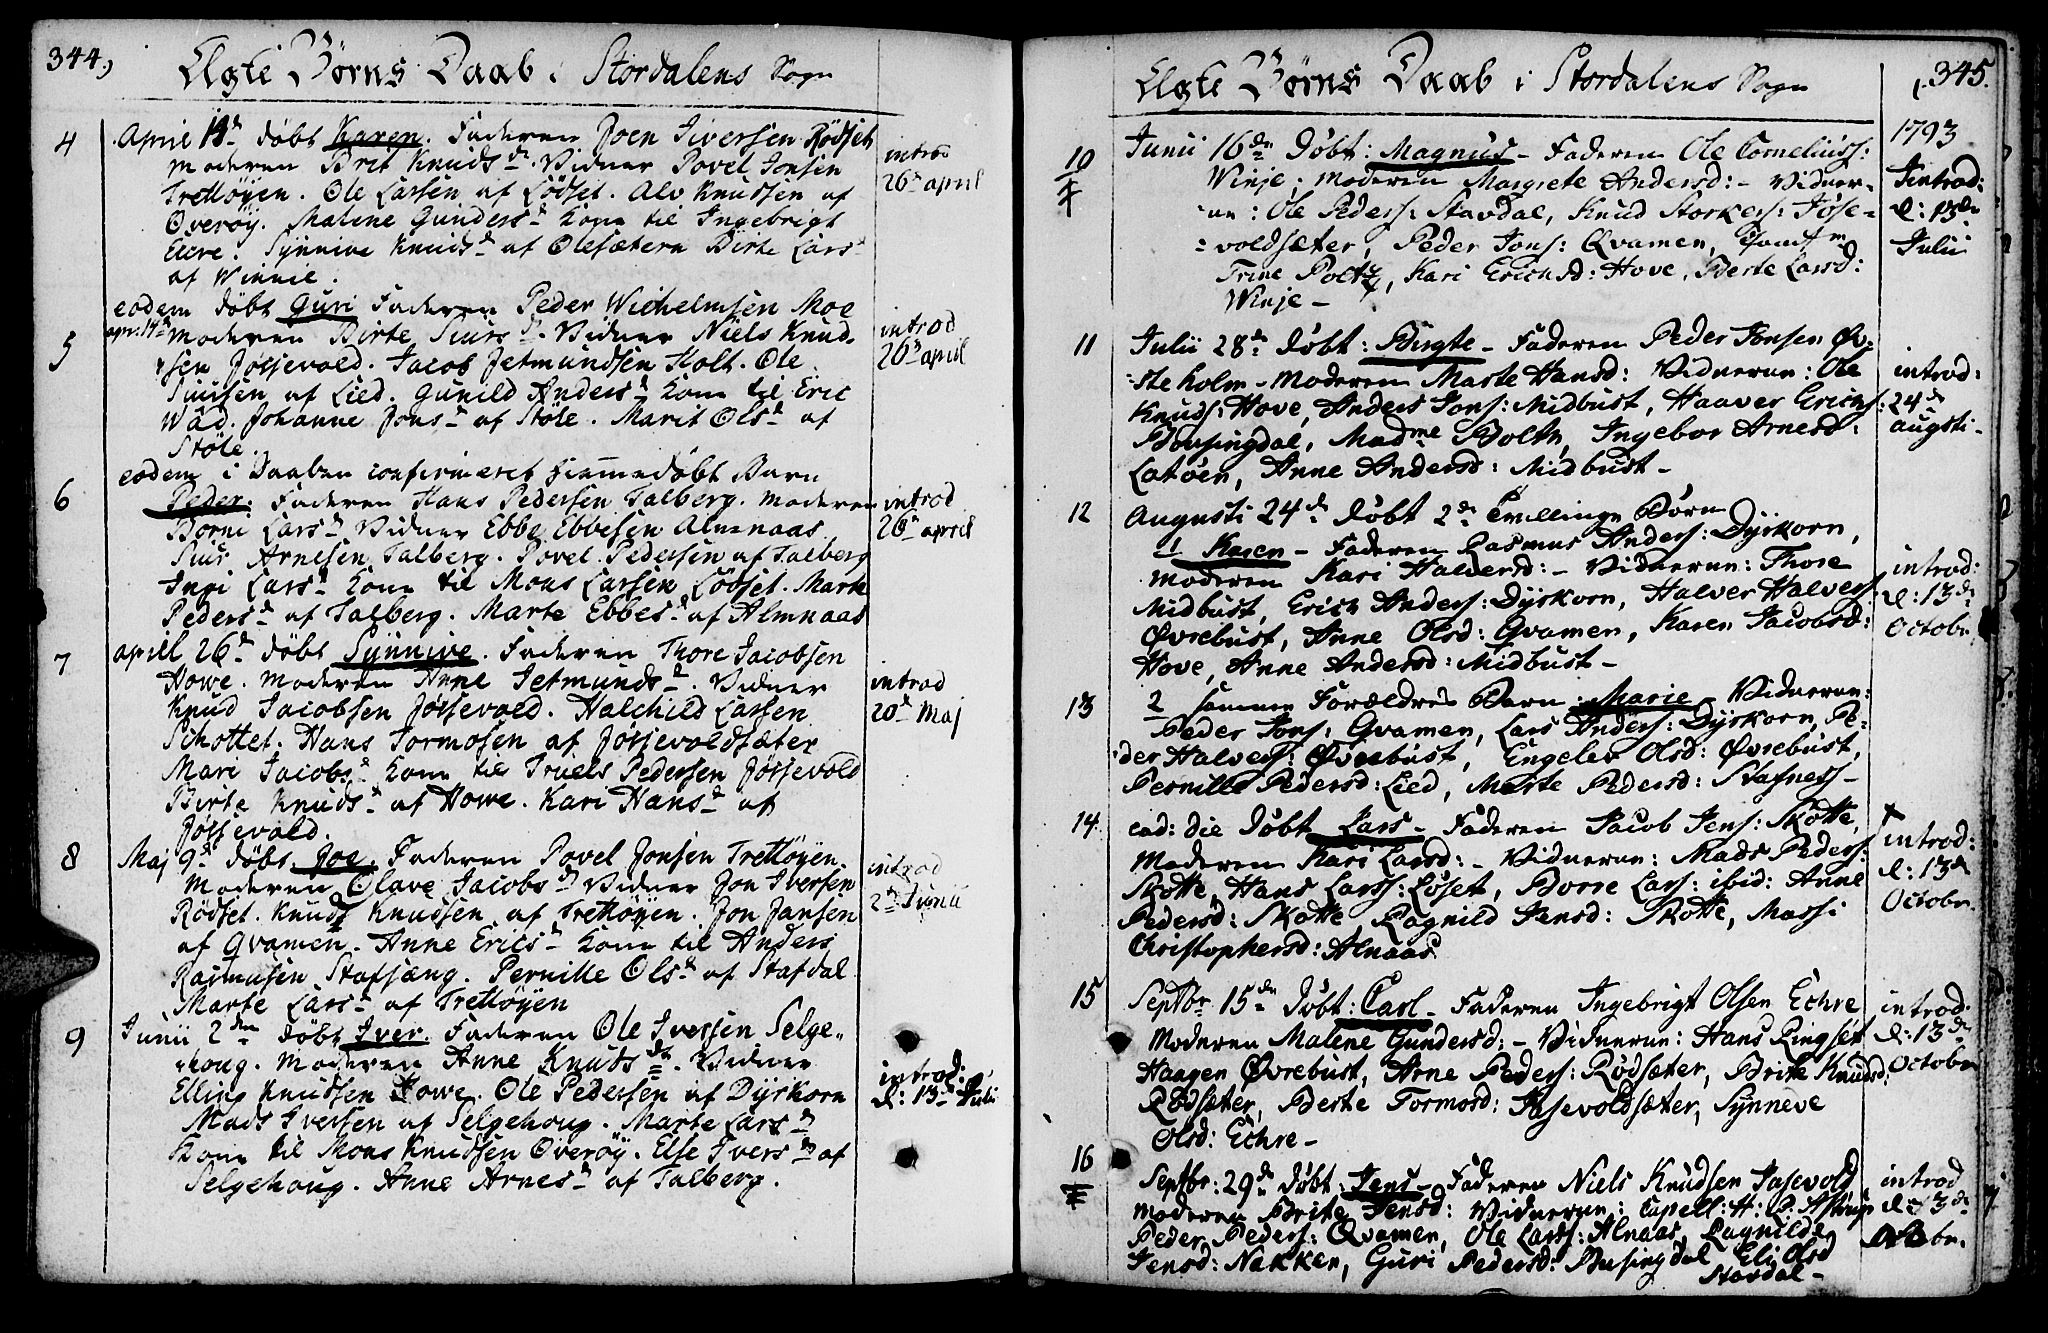 344,
Ægte Børns Daab i Stordalens Sogn
4 April 14d døbt Karen. Faderen Joen Iversen Rødset
Moderen Brit Knudsd. Vidner Povel Jonsen
Trettøyen. Ole Larsen af Lødset. Alv Knudsen af
Overøy. Malene Gundersd Kone til Ingebrigt
Eere. Synnive Knudsd af Olesætern Birte Larsd
af Winnie.
introd
26d april
5 eodem døbt Guri Faderen Peder Wichelmsen Moe
apr: 14d Moderen Birte Siursd. Vidner Niels Knud-
sen Jøssevold. Jacob Jetmundsen Holt. Ole
Siursen af Lied. Gunild Andersd Kone til Eric
Wad. Johanne Jonsd af Støle. Marit Olsd af
Støle.
introd
26d april
6 eodem i Daaben confirmeret Hiemmedøbt Barn
Peder. Faderen Hans Pedersen Talberg. Moderen
Borni Larsd Vidner Ebbe Ebbesen Almnaas
Siur Arnesen Talberg. Povel Pedersen af Talberg
Inri Larsd Kone til Mons Larsen Lødset. Marte
Pedersd af Talberg. Marte Ebbesd af Almnaas
introd
26d april
7 april 26d døbt Synnive. Faderen Thore Jacobsen
Howe. Moderen Anne Jetmundsd. Vidner
Knud Jacobsen Jøssevold. Halchild Larsen
Schottet. Hans Tormosen af Jøssevoldsæter
Mari Jacobsd Kone til Truels Pedersen Jøssevold
Birte Knudsd af Howe. Kari Hansd af
Jøssevold.
introd
20d Maj
8 Maj 9d døbt Joe. Faderen Povel Jonsen Trettøyen.
Moderen Olave Jacobsd Vidner Jon Iversen
Rødset. Knud Knudsen af Trettøyen. Jon Jansen
af Qvamen. Anne Ericsd Kone til Anders
Rasmusen Stafsæng. Pernille Olsd af Stafdal
Marte Larsd af Trettøyen
introd
2d Junii
9 Junii 2den døbt Iver. Faderen Ole Iversen Selge-
houg. Moderen Anne Knudsd. Vidner
Elling Knudsen Howe. Ole Pedersen af Dyrkorn
Mads Iversen af Selgehoug. Marte Larsd
Kone til Mons Knudsen Overøy. Else Iversd af
Selgehoug. Anne Arnesd af Talberg.
introd:
d: 13d Julii
345.
Ægte Børns Daab i Stordalens Sogn
1793
10 Junii 16de Døbt: Magnus - Faderen Ole Corneliuss:
Winje, Moderen Margrete Andersd: - Vidner-
ne: Ole Peders: Stavdal, Knud Storkers: Jøse-
voldsæter, Peder Jons: Qvamen,
Trine Poltz, Kari Erichsd: Hove, Berte Larsd:
Winje -
Introd:
d: 13de
Julii
11 Julii 28de døbt: Birgte - Faderen Peder Jonsen Øv-
steholm - Moderen Marte Hansd: Vidnerne: Ole
Knuds: Hove, Anders Jons: Midbust, Haaver Erichs:
Busingdal, Madme Bolth, Ingebor Arnesd:
Latøen, Anne Andersd: Midbust -
introd:
24d
augsti-
12 Augusti 24de døbt 2de Tvillinge Børn
1 Karen - Faderen Rasmus Anders: Dyrkorn,
Moderen Kari Halversd: - Vidnerne: Thore
Midbust, Erich Anders: Dyrkorn, Halver Halvers:
Øvrebust, Anne Olsd: Qvamen, Karen Jacobsd:
Hove, Anne Andersd: Midbust -
introd:
d: 13de
Octobr.
13 2 samme Forældres Barn Marie - Vidnerne:
Peder Jons: Qvamen, Lars Anders: Dyrkorn, Pe-
der Halvers: Øvrebust, Engelev Olsd: Øvrebust,
Pernille Pedersd: Lied, Marte Pedersd: Stafness -
14 ead: die Døbt Lars - Faderen Jacob Jens: Skotte,
Moderen Kari Larsd: - Vidnerne: Mads Peders:
Skotte, Hans Larss: Løset, Borre Lars: ibid: Anne
Pedersd: Skotte Ragnild Jensd: Skotte, Massi
Christophersd: Alnaas
introd:
d: 13d
Octobr.
15 Septbr 15de døbt: Carl - Faderen Ingebrigt Olsen Echre
Moderen Malene Gundersd: - Vidnerne: Hans Ringset
Haagen Øvrebust, Arne Peders: Rødsæter, Brite Knudsd:
Rødsæter, Berte Tormosd: Jøsevoldsæter, Synneve
Olsd: Echre -
introd:
d: 13de
Octobr
16 Septbr: 29de Døbt: Jens - Faderen Niels Knudsen Jøsevold
Moderen Brite Jensd: Vidnerne: Capell: H: P. Astrup
Peder Peders: Qvamen, Ole Larss: Alnaas, Ragnilde
Jensd: Nakken, Guri Pedersd: Busingdal Eli Olsd
Stavdal -
introd
d: 13de
Octobr.